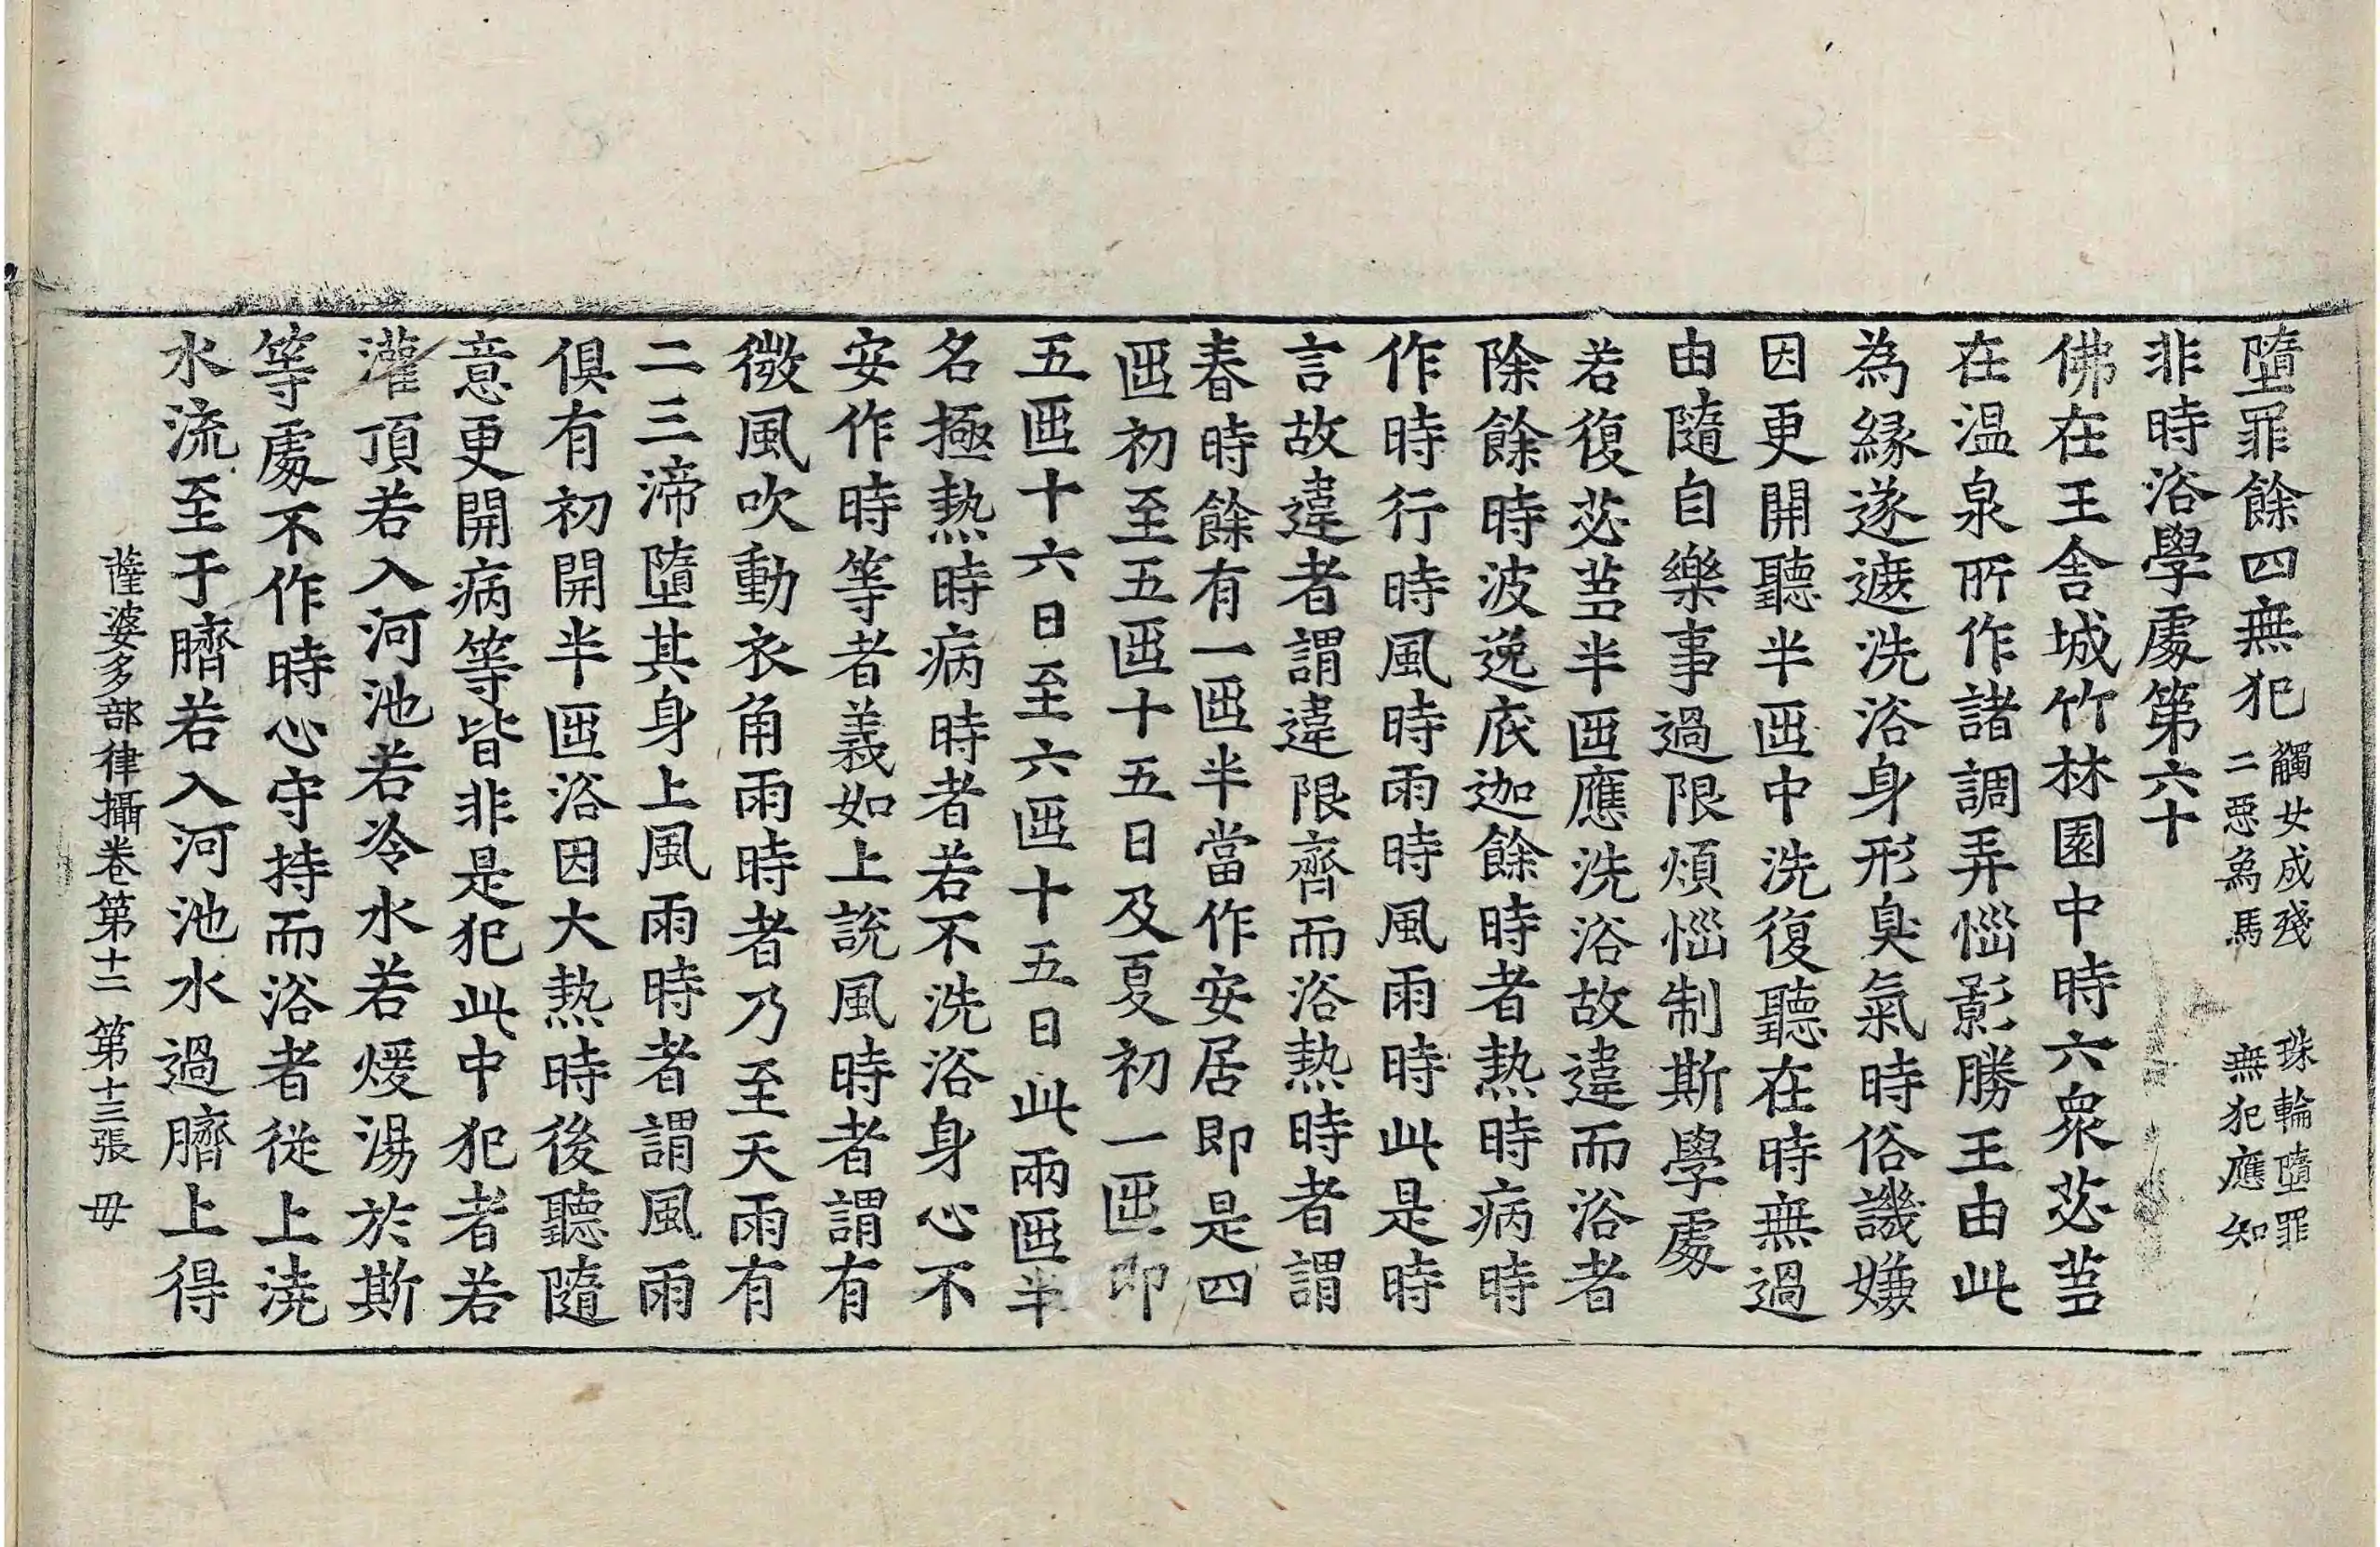 墮罪餘四無犯觸女成殘二惡為馬珠輪墮罪無犯應知
非時浴學處第六十
佛在王舍城竹林園中時六衆苾蒭
在温泉所作諸調弄惱影勝王由此
為緣遂遮洗浴身形臭氣時俗譏嫌
因更開聽半迊中洗復聽在時無過
由隨自樂事過限煩惱制斯學處
若復苾蒭半迊應洗浴故違而浴者
除餘時波逸底迦餘時者熱時病時
作時行時風時雨時風雨時此是時
言故違者謂違限齊而浴熱時者謂
春時餘有一迊半當作安居即是四
迊初至五迊十五日及夏初一迊即
五迊十六日至六迊十五日此兩迊半
名極熱時病時者若不洗浴身心不
安作時等者義如上說風時者謂有
微風吹動衣角雨時者乃至天雨有
二三渧墮其身上風雨時者謂風雨
俱有初開半迊浴因大熱時後聽隨
意更開病等皆非是犯此中犯者若
灌頂若入河池若冷水若煖湯於斯
等處不作時心守持而浴者從上澆
水流至于臍若入河池水過臍上得
薩婆多部律攝卷第十二 第十三張 毋